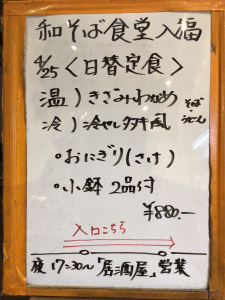 和そば食堂入福
4/25〈日替定食〉
温)きざみわかめ
冷)冷やしタヌキ風
そば・うどん
・おにぎり(さけ)
・小鉢 2品付
¥880.-
入口こちら
夜17:30〜「居酒屋」営業